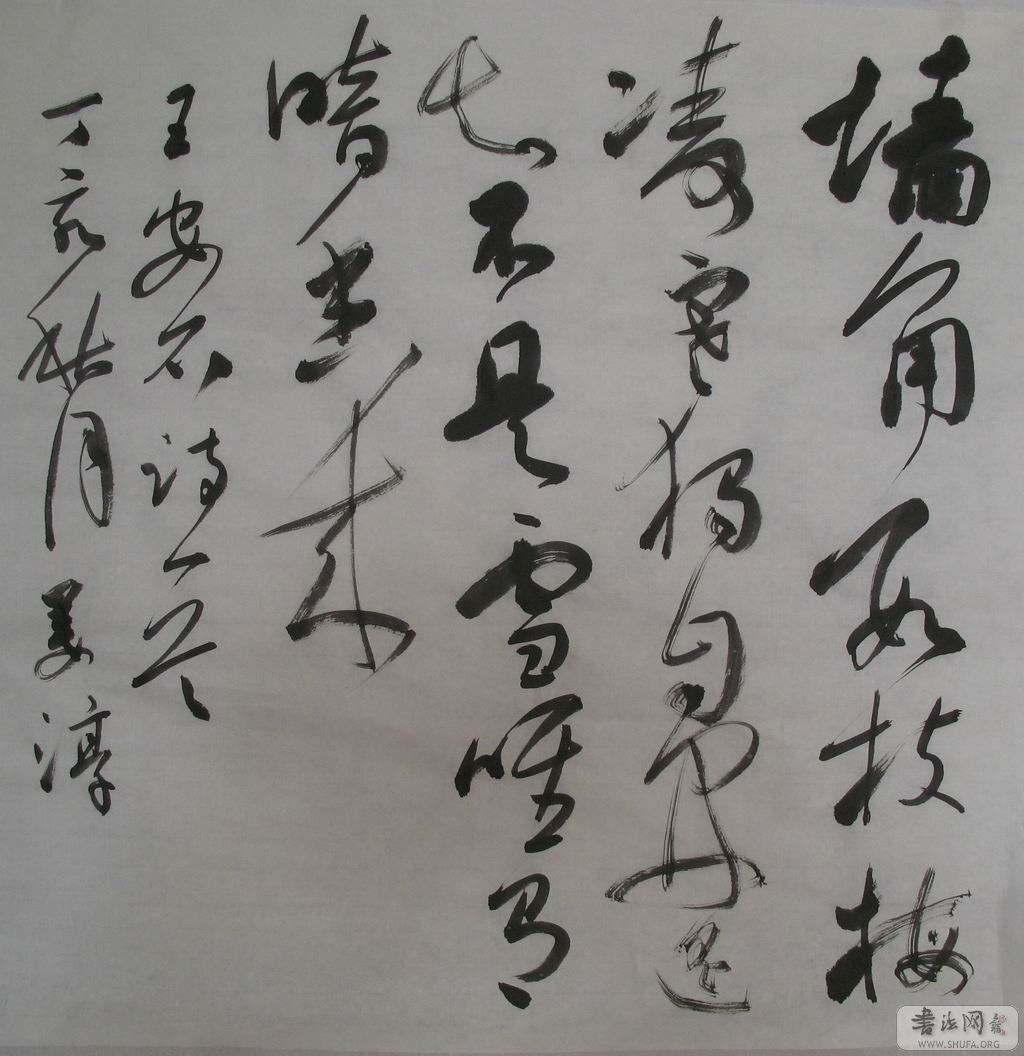 墙角数枝梅
凌寒独自開遥
知不是雪唯有
暗香来
王安石诗一首
丁亥秋月 姜淳
書法网
WWW.SHUFA.ORG